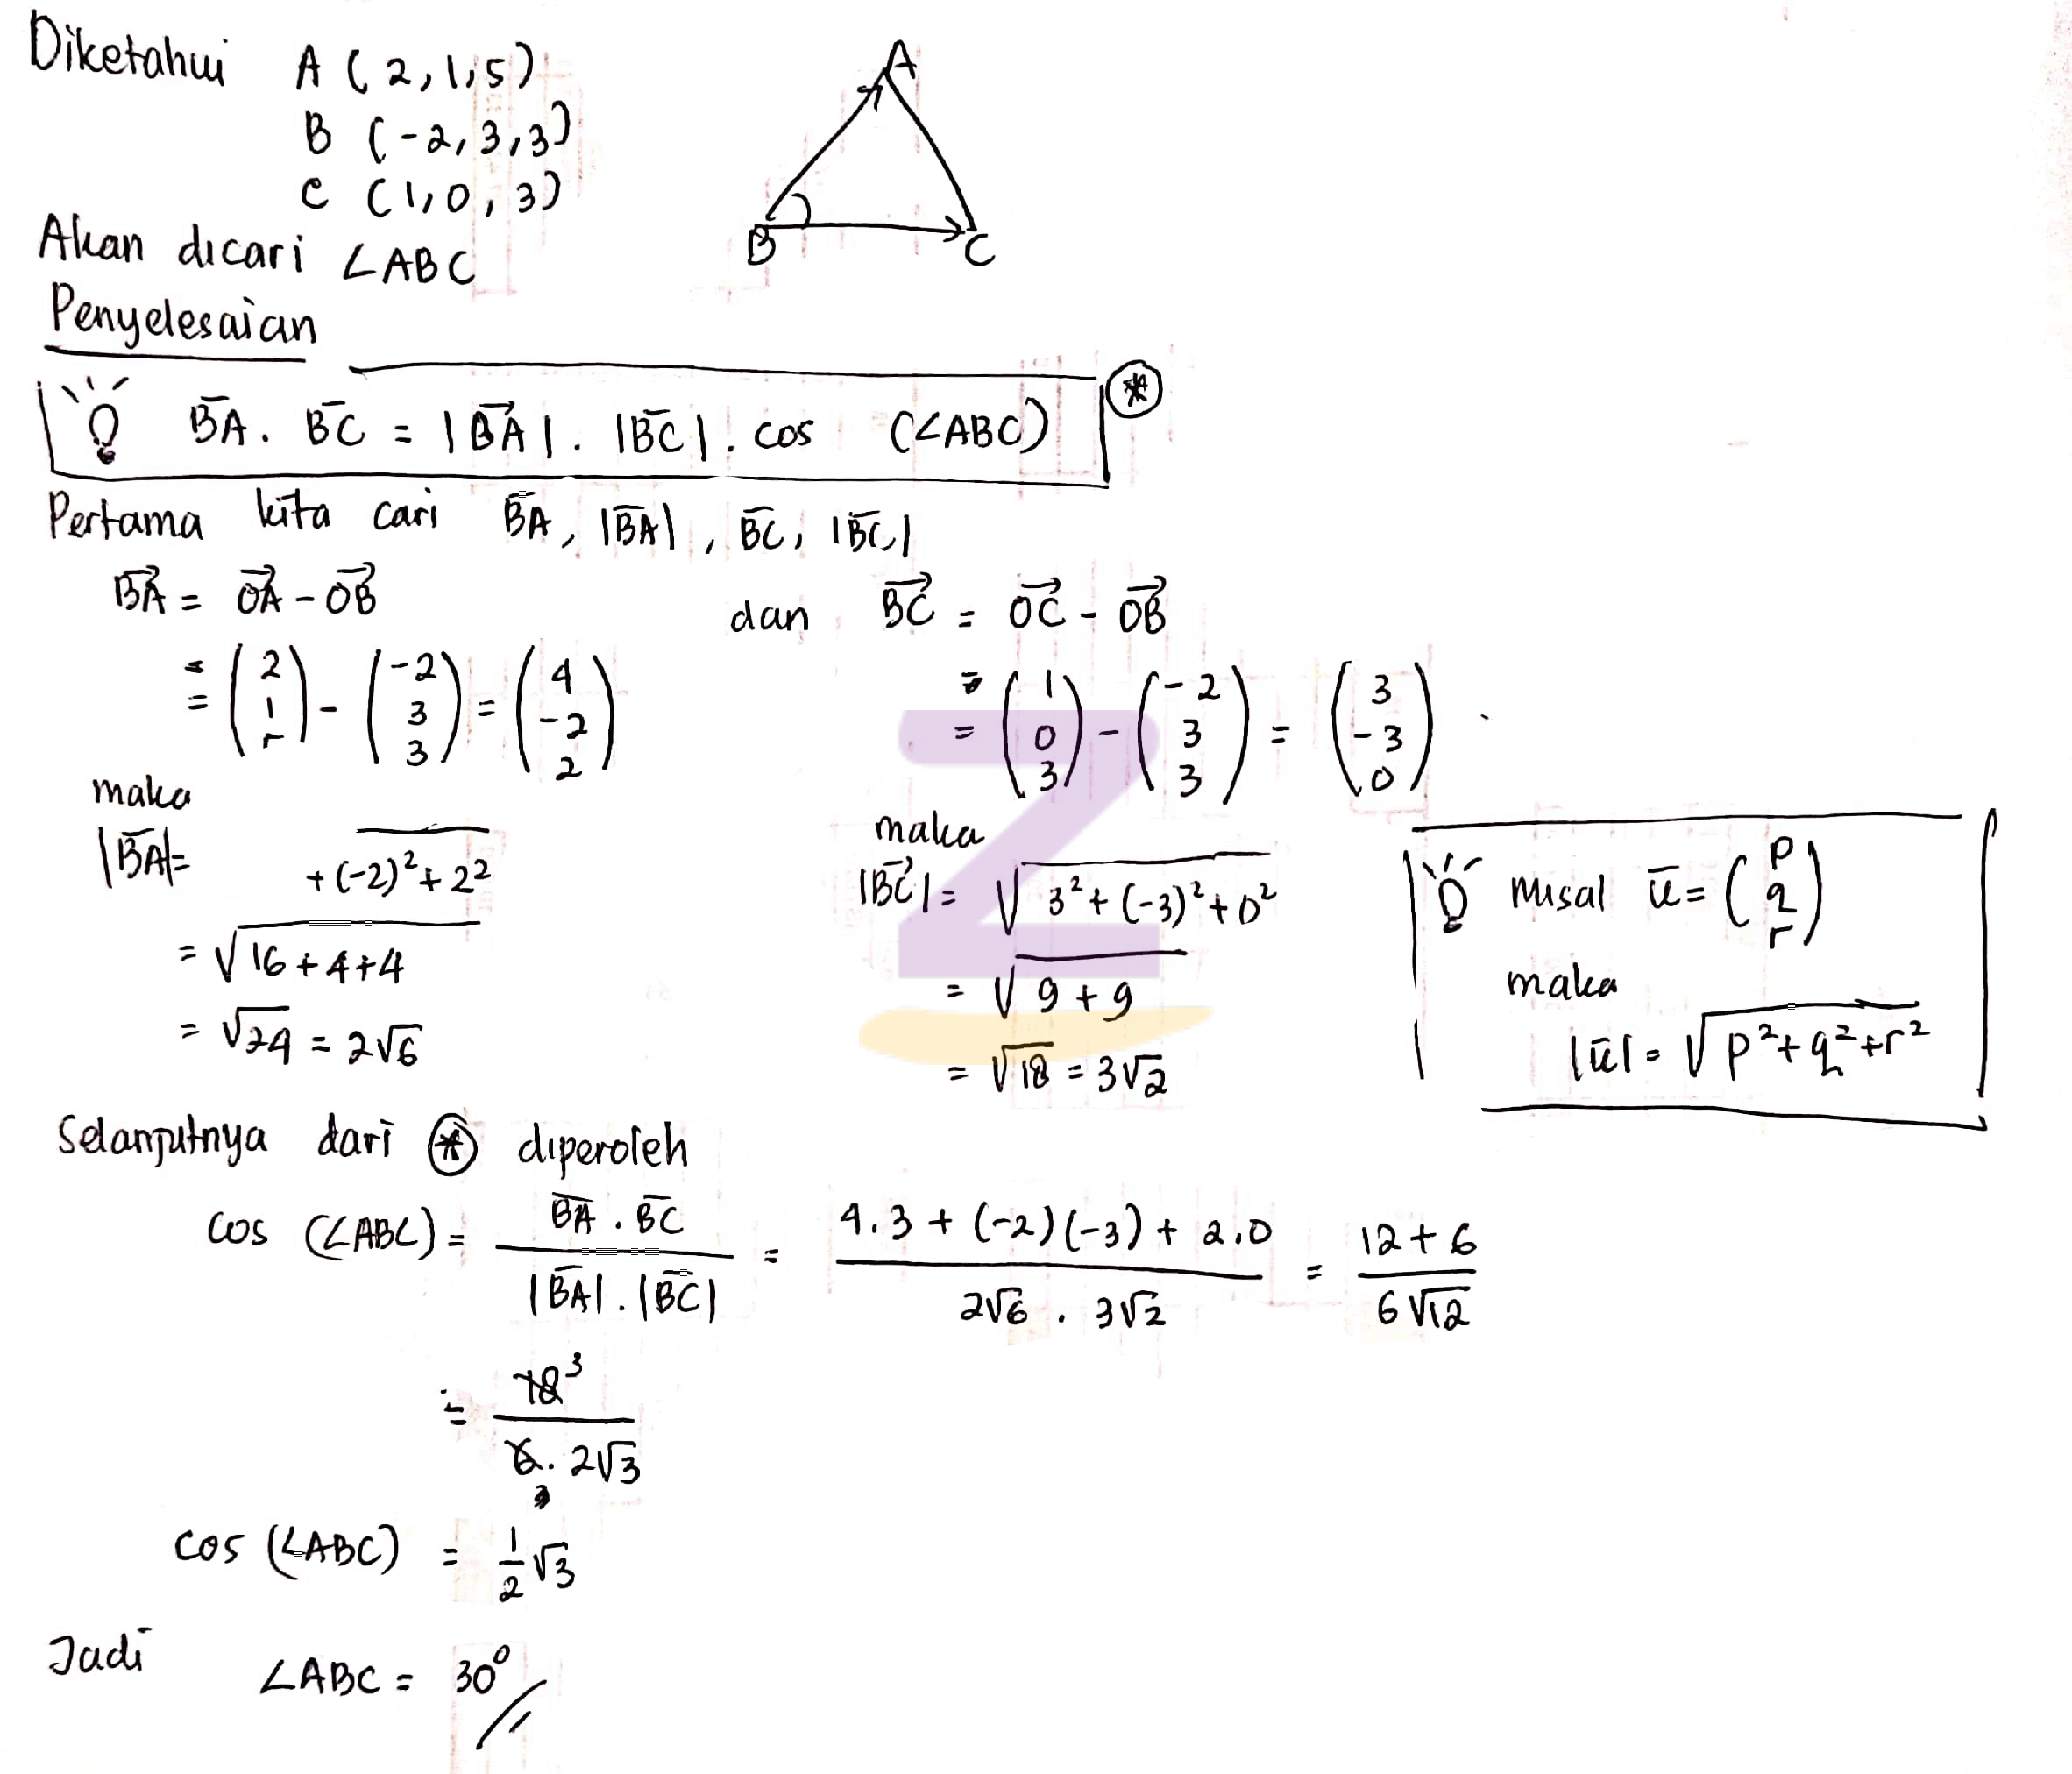 Diketahui A (2,1,5)
B (-2,3,3)
C (1,0,3)
A
B
C
Akan dicari ∠ABC
Penyelesaian
B̄A . B̄C = |B⃗A| . |B̄C| . cos (∠ABC) *
Pertama kita cari B̄A, |B̄A|, B̄C, |B̄C|
B⃗A = O⃗A - O⃗B
= (2 1 r) - (-2 3 3) = (4 -2 2)
maka
|B̄A| = + (-2)² + 2²
= √16+4+4
= √24 = 2√6
dan B⃗C = O⃗C - O⃗B
= (1 0 3) - (-2 3 3) = (3 -3 0)
maka
|B⃗C| = √3² + (-3)² + 0²
= √9 + 9
= √18 = 3√2
misal ū = (p q r)
maka
|ū| = √p²+q²+r²
Selanjutnya dari * diperoleh
cos (∠ABC) = B̄A . B̄C / |B̄A| . |B̄C| = 4.3 + (-2)(-3) + 2.0 / 2√6 . 3√2 = 12+6 / 6√12
= 18 3 / 6. 2√3
cos (∠ABC) = 1/2 √3
Jadi ∠ABC = 30°